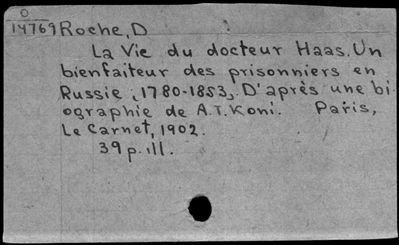 O
14769 Roche, D
La Vie du docteur Haas. Un
bienfaiteur des prisonniers en
Russie, 1780-1853, D'après une bi
ographie de A.T. Koni. Paris,
Le Carnet, 1902.
39 p. ill.